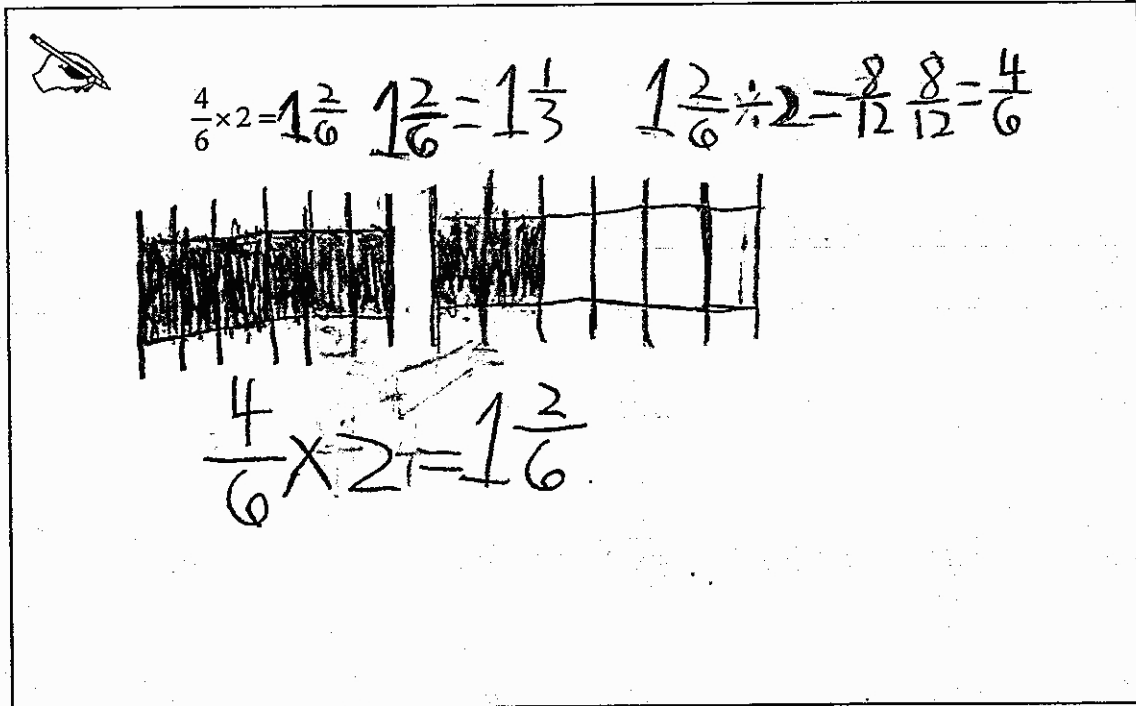 4/6 × 2 = 1 2/6 1 2/6 = 1 1/3 1 2/6 ÷ 2 = 8/12 8/12 = 4/6
4/6 × 2 = 1 2/6